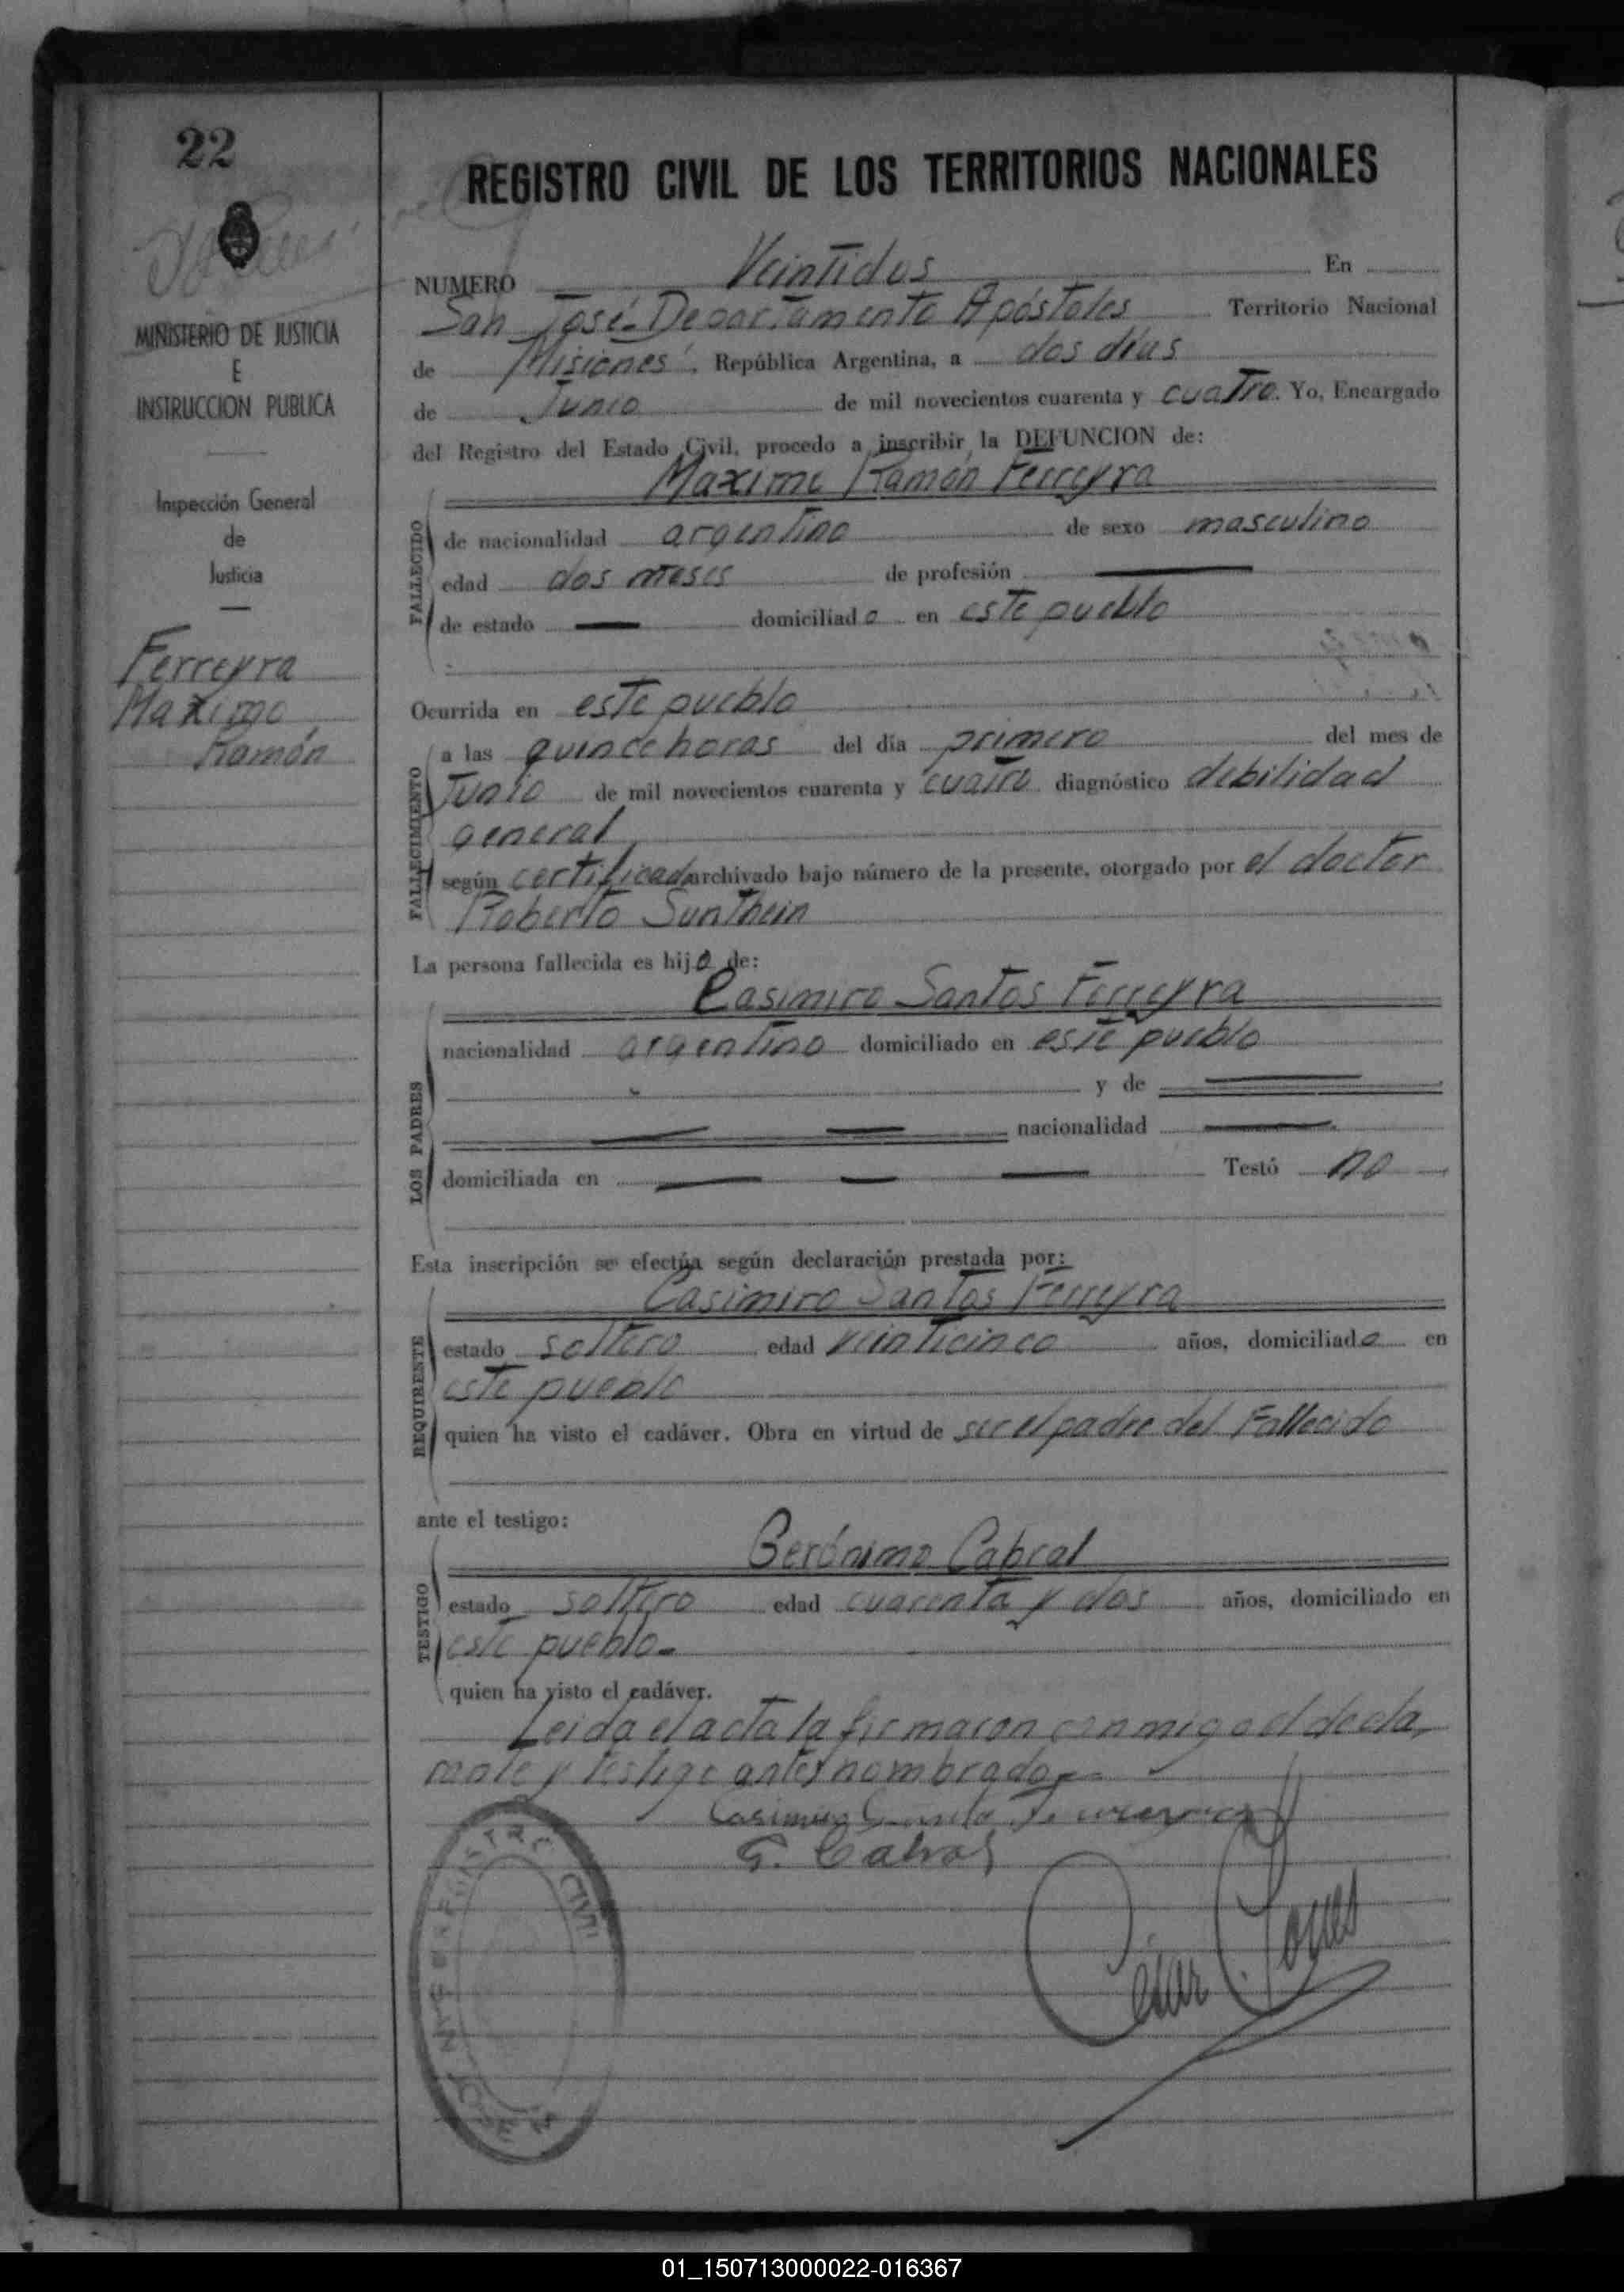 22
REGISTRO CIVIL DE LOS TERRITORIOS NACIONALES
MINISTERIO DE JUSTICIA
E
INSTRUCCION PUBLICA
Inspección General
de
Justicia
Ferreyra
Maximo
Ramón
NUMERO Veintidos En
San José Departamento Apóstoles Territorio Nacional
de Misiones. República Argentina, a dos días
de Junio de mil novecientos cuarenta y cuatro. Yo, Encargado
del Registro del Estado Civil, procedo a inscribir la DEFUNCION de:
Maximo Ramón Ferreyra
FALLECIDO
de nacionalidad argentino de sexo masculino
edad dos meses de profesión
de estado domiciliado en este pueblo
Ocurrida en este pueblo
FALLECIMIENTO
a las quince horas del día primero del mes de
Junio de mil novecientos cuarenta y cuatro diagnóstico debilidad
general
según certificado archivado bajo número de la presente, otorgado por el doctor
Roberto Sunthein
La persona fallecida es hijo de:
Casimiro Santos Ferreyra
LOS PADRES
nacionalidad argentino domiciliado en este pueblo
y de
nacionalidad
domiciliada en Testó no
Esta inscripción se efectúa según declaración prestada por:
Casimiro Santos Ferreyra
REQUIRENTE
estado soltero edad veinticinco años, domiciliado en
este pueblo
quien ha visto el cadáver. Obra en virtud de ser el padre del Fallecido
ante el testigo:
Gerónimo Cabral
TESTIGO
estado soltero edad cuarenta y dos años, domiciliado en
este pueblo.-
quien ha visto el cadáver.
Leida el acta la firmaron conmigo el decla,
rante y testigo antes nombrado.-
Casimiro
G. Cabral
Cesar
REGISTRO CIVIL
SAN JOSE
01_150713000022-016367